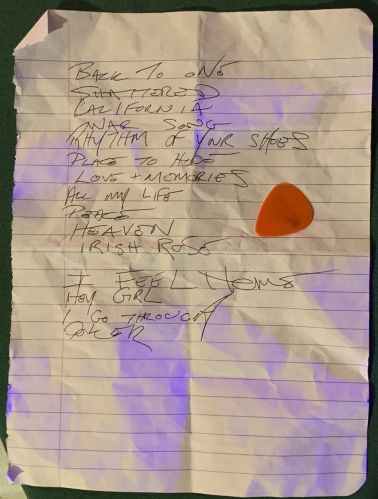 BACK TO ONE
SHATTERED
CALIFORNIA
WAR SONG
RHYTHM OF YOUR SHOES
PLACE TO HIDE
LOVE + MEMORIES
ALL MY LIFE
PEACE
HEAVEN
IRISH ROSE
I FEEL HOME
HEY GIRL
I GO THROUGH
POKER